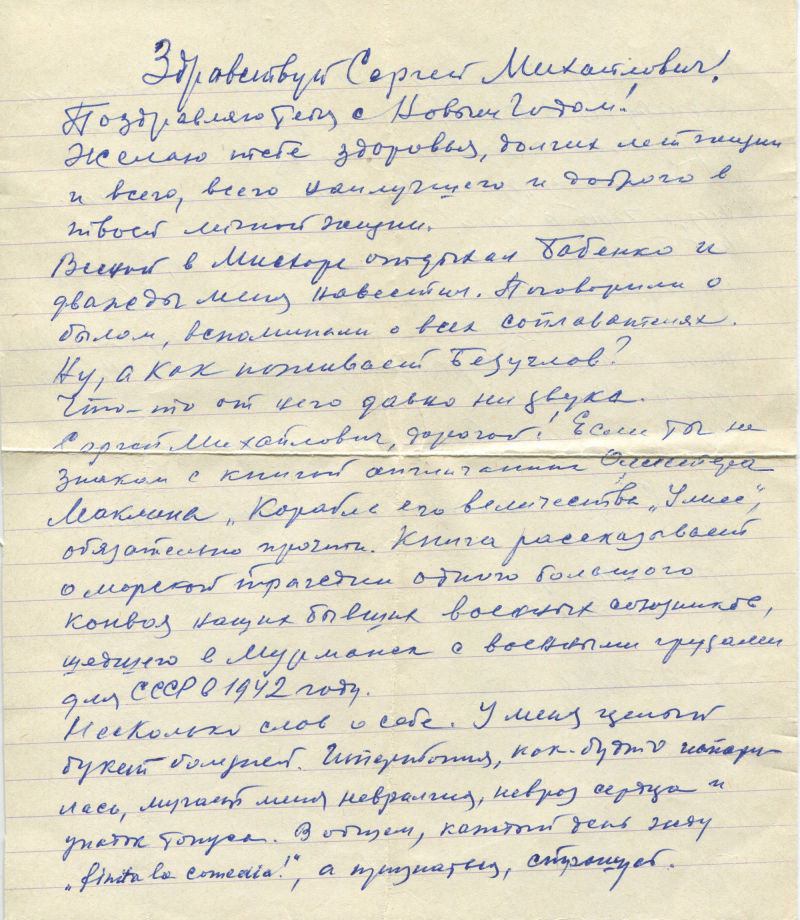 Здравствуй Сергей Михайлович!
Поздравляю тебя с Новым Годом!
Желаю тебе здоровья, долгих лет жизни
и всего, всего наилучшего и доброго в
твоей личной жизни.
Весной в Мисхоре отдыхал Бабенко и
дважды меня навестил. Поговорили о
былом, вспоминали о всех соплавателях.
Ну, а как поживает Безуглов?
Что-то от него давно ни звука.
Сергей Михайлович, дорогой! Если ты не
знаком с книгой англичанина
Маклина „Корабль его величества „Улисс",
обязательно прочти. Книга рассказывает
о морской трагедии одного большого
конвоя наших бывших военных союзников,
шедшего в Мурманск с военными грузами
для СССР в 1942 году.
Несколько слов о себе. У меня целый
букет болезней. как-будто
лась, мучает меня невралгия, невроз сердца и
упадок тонуса. В общем, каждый день жду
„finita la comedia!", а признаться,